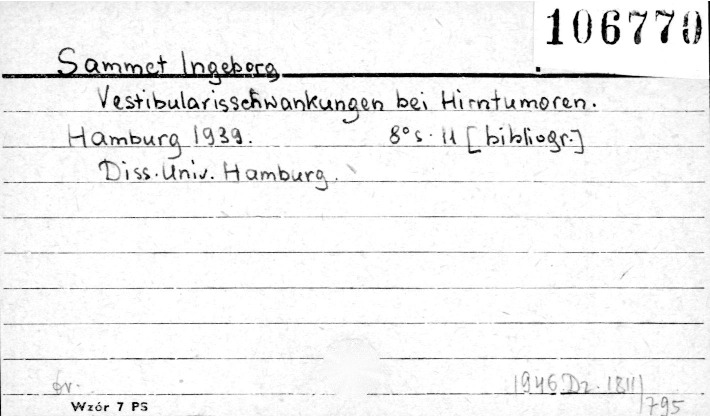 106770
Sammet Ingeborg
Vestibularisschwankungen bei Hirntumoren.
Hamburg 1939. 8° s. 11 [bibliogr.]
Diss. Univ. Hamburg.
fr.
1946 Dz. 1811/795
Wzór 7 PS